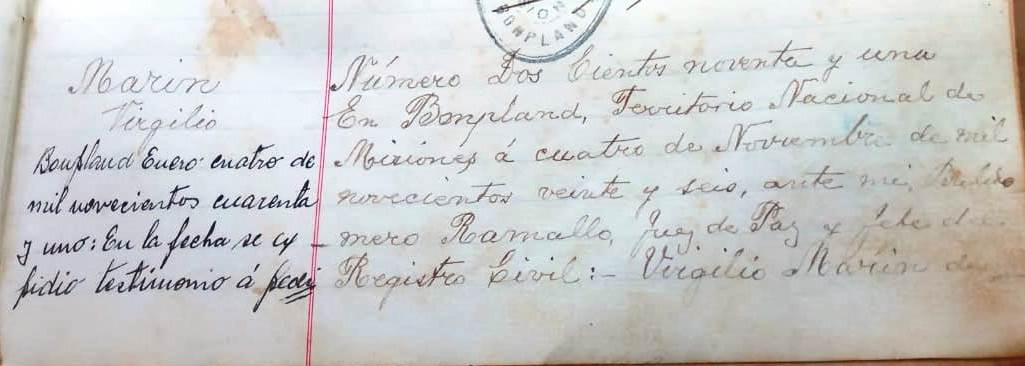 ION
BONPLAND
Marin
Virgilio
Bonpland Enero cuatro de
mil novecientos cuarenta
y uno: En la fecha se ex
pidio testimonio á pedi
Número Dos Cientos noventa y una
En Bonpland, Territorio Nacional de
Misiones á cuatro de Noviembre de mil
novecientos veinte y seis, ante mi,
mero Ramallo, Juez de Paz y Jefe del
Registro Civil:- Virgilio Marin de